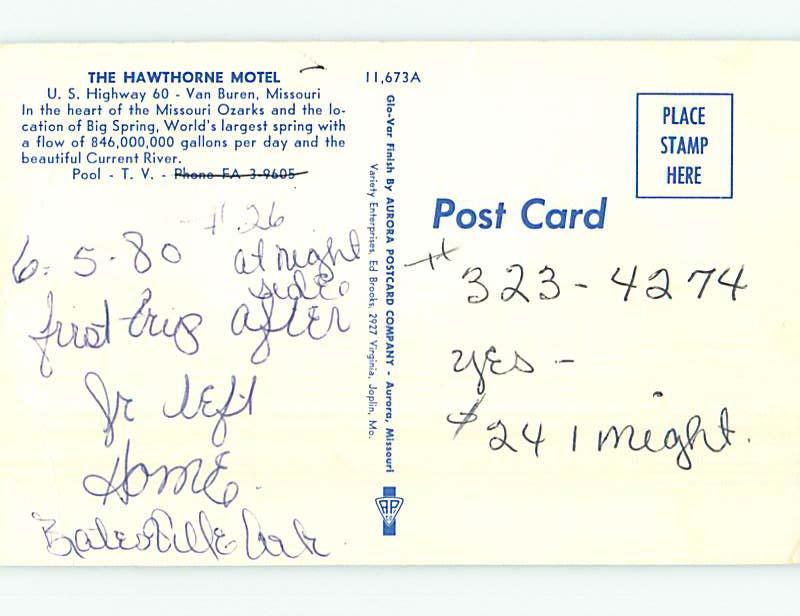 THE HAWTHORNE MOTEL
U. S. Highway 60 - Van Buren, Missouri
In the heart of the Missouri Ozarks and the lo-
cation of Big Spring, World's largest spring with
a flow of 846,000,000 gallons per day and the
beautiful Current River.
Pool - T. V. - Phone FA 3-9605
# 26
6-5-80 at night
side
first trip AftER
Jr left
HomE.
Batesville Ark
11,673A
Glo-Var Finish By AURORA POSTCARD COMPANY - Aurora, Missouri
Variety Enterprises, Ed Brooks, 2927 Virginia, Joplin, Mo.
PLACE
STAMP
HERE
Post Card
# 323-4274
yEs -
$24 1 might.